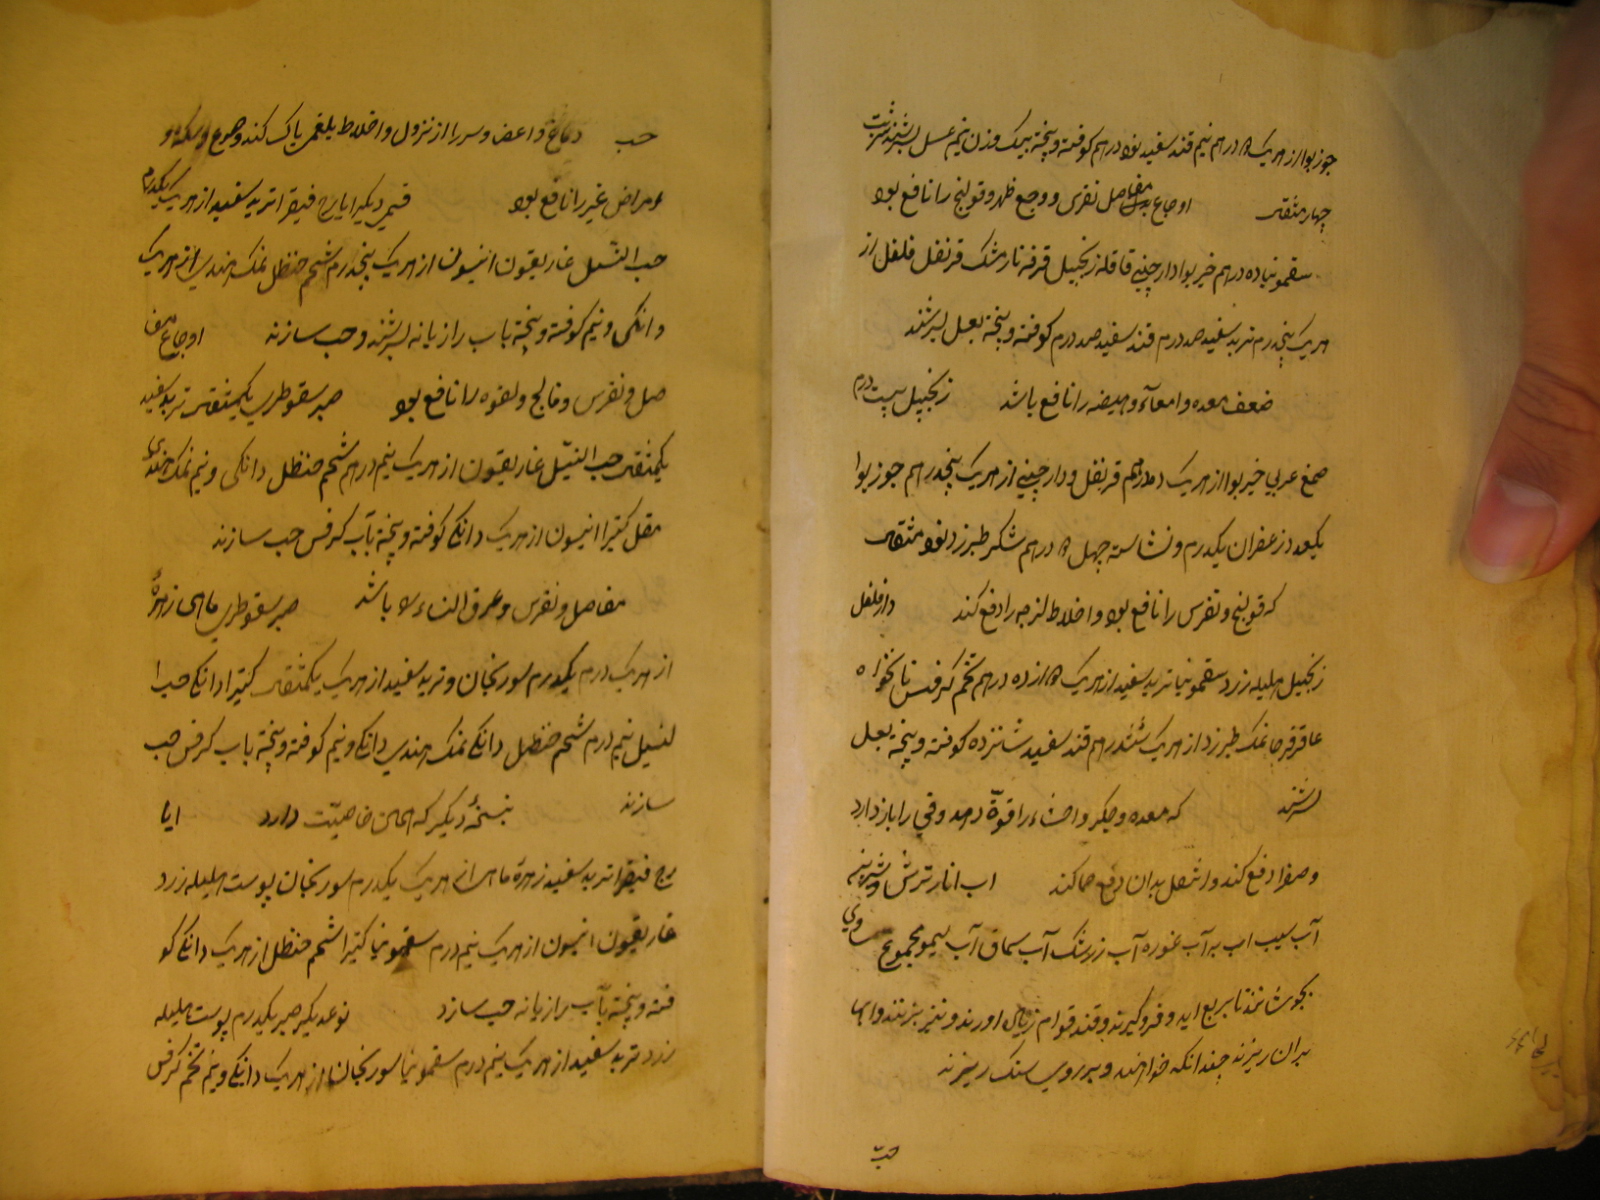 جوزبوا از هریک ۵ درهم نیم قند سفید نود درهم کوفته و پیخته بیک وزن نیم عسل بسرشند شربت
چهار مثقال اوجاع مفاصل نقرس و وجع ظهر و قولنج را نافع بود
سقمونیا ده درهم خیربوا دارچینی قاقله زنجبیل قرفه نارمشک قرنفل فلفل از
هریک پنجدرم تربد سفید صد درم قند سفید صد درم کوفته و پیخته بعسل بسرشند
ضعف معده و امعاء و هیضه را نافع باشد زنجبیل بیست درم
صمغ عربی خیربوا از هریک ده درهم قرنفل و دارچینی از هریک پنجدرهم جوزبوا
یکعدد زعفران یکدرم و نشاسته چهل ۵ درهم شکر طبرزد نود مثقال
که قولنج و نقرس را نافع بود و اخلاط لزجه را دفع کند دارفلفل
زنجبیل هلیله زرد سقمونیا تربد سفید از هریک ۵ از ده درهم تخم کرفس نانخواه
عاقرقرحا نمک طبرزد از هریک درهم قند سفید شانزده کوفته و پیخته بعسل
بسرشند که معده و جکر و احشاء را قوة دهد و قی را باز دارد
و صفرا دفع کند و بدان دفع کند اب انار ترش و شیرین
آب سیب اب به آب غوره آب زرشک آب سماق آب لیمو مجموع مساوی
بجوشانند تا بربع اید و فروگیرند و قند قوام اورند و نیز بپزند و ابها
بران ریزند چندانکه خواهند و بر روی سنک ریزند
حب
حب دماغ و اعضا و سر را از نزول و اخلاط بلغمی پاک کند و صرع و سکته و
امراض غیر را نافع بود قسمی دیکر ایارج فیقرا تربد سفید از هریک یکدرم
حب النیل غاریقون انیسون از هریک پنجدرم شحم حنظل نمک هندی از هریک
دانکی و نیم کوفته و پیخته باب رازیانه بسرشند و حب سازند اوجاع مفا
صل و نقرس و فالج و لقوه را نافع بود صبر سقوطری یکمثقال تربد سفید
یکمثقال حب النیل غاریقون از هریک نیم درهم شحم حنظل دانکی و نیم نمک هندی
مقل کتیرا انیسون از هریک دانکی کوفته و پیخته بآب کرفس حب سازند
مفاصل و نقرس و عرق النساء باشد صبر سقوطری ماهی زهرهٔ
از هریک درم یکدرم سورنجان و تربد سفید از هریک یکمثقال کتیرا دانکی حب ا
لنیل نیم درم شحم حنظل دانکی نمک هندی دانکی و نیم کوفته و پیخته باب کرفس حب
سازند نسخهٔ دیکر که همین خاصیّت دارد ایا
رج فیقرا تربد سفید زهرهٔ ماهی از هریک یکدرم سورنجان پوست هلیله زرد
غاریقون انیسون از هریک نیم درم سقمونیا کتیرا شحم حنظل از هریک دانکی کو
فته و پیخته بآب رازیانه حب سازد نوعدیکر صبر یکدرم پوست هلیله
زرد تربد سفید از هریک نیم درم سقمونیا سورنجان از هریک دانکی و نیم تخم کرفس